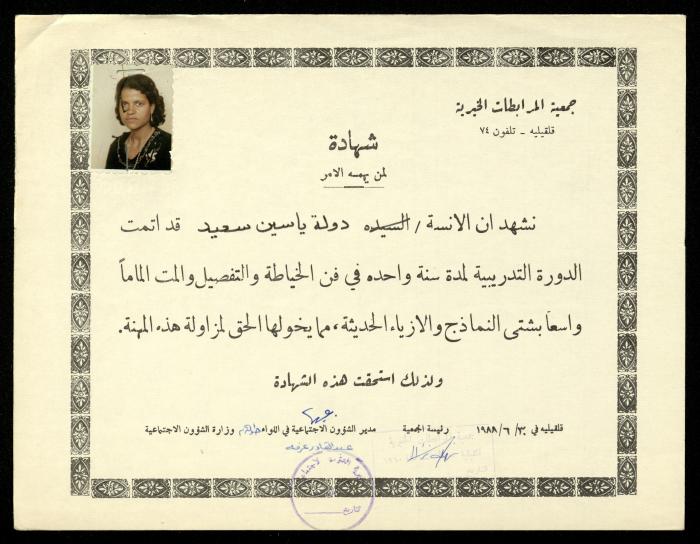 جمعية المرابطات الخيرية
قلقيليه - تلفون ٧٤
شهادة
لمن يهمه الامر
نشهد ان الانسة / السيده دولة ياسين سعيد قد اتمت
الدورة التدريبية لمدة سنة واحده في فن الخياطة والتفصيل والمت الماماً
واسعاً بشتى النماذج والازياء الحديثة، مما يخولها الحق لمزاولة هذه المهنة.
ولذلك استحقت هذه الشهادة
قلقيليه في ٣٠ / ٦ / ١٩٨٨ رئيسة الجمعية مدير الشؤون الاجتماعية في اللواء وزارة الشؤون الاجتماعية
عبد القادر عرفه